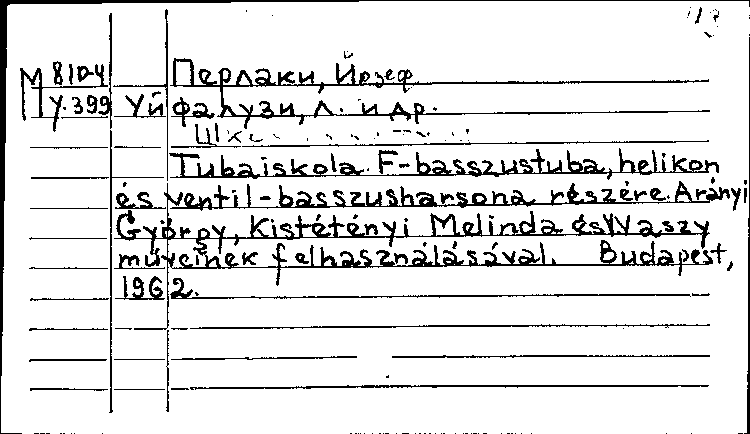 113
М 810-4 Перлаки, Йозеф
У.399 Уйфалузи, Л. и др.
Tubaiskola F-basszustuba, helikon
és ventil-basszusharsona részére. Arányi
György, Kistétényi Melinda és Vaszy
műveinek felhasználásával. Budapest,
1962.